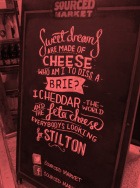 SOURCED
MARKET
Sweet dreams
ARE MADE OF
CHEESE
WHO AM I TO DISS A
BRIE?
I CHEDDAR THE
WORLD
AND the feta cheese
EVERYBODY'S LOOKING
FOR STILTON
SOURCED MARKET
SOURCED MARKET